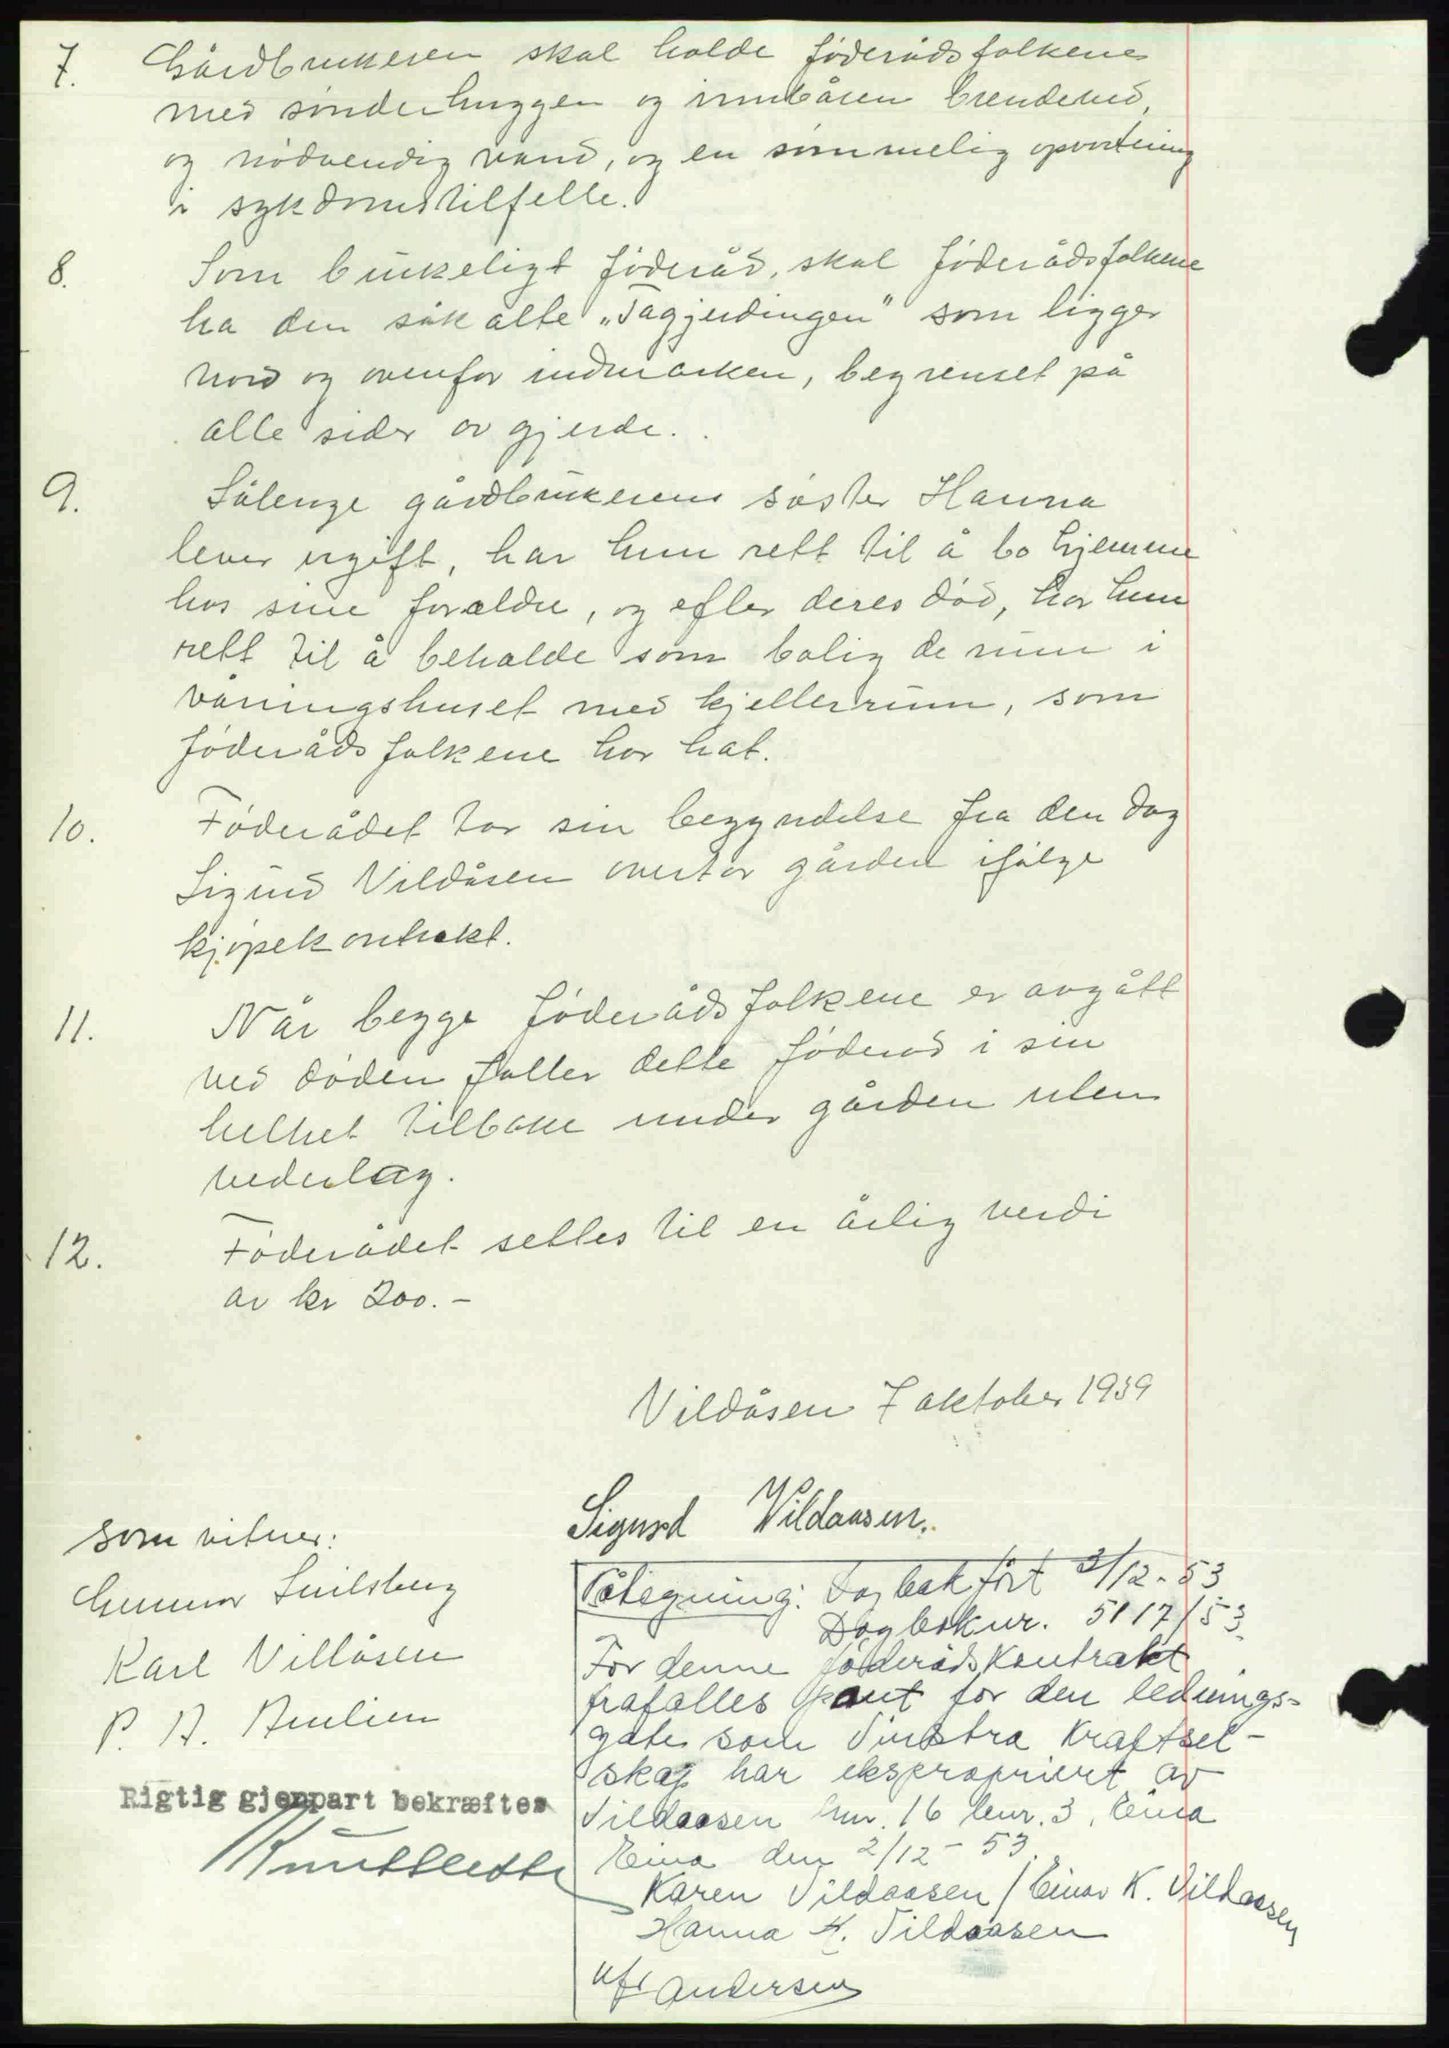 7. Gårdbrukeren skal holde föderådsfolkene
med sönderhuggen og innbåren brendeved,
og nödvendig vand, og en sömmelig opvartning
i sykdomstilfelle.
8. Som brukeligt föderåd, skal föderådsfolkene
ha den såkalte „Tagjerdingen" som ligger
nord og ovenfor indmarken, begrenset på
alle sider av gjerde.
9. Sålenge gårdbrukerens söster Hanna
lever ugift, har hun rett til å bo hjemme
hos sine forældre, og efter deres död, har hun
rett til å beholde som bolig de rum i
våningshuset med kjellerrum, som
föderådsfolkene har hat.
10. Föderådet tar sin begyndelse fra den dag
Sigurd Vildåsen overtar gården ifölge
kjöpekontrakt.
11. Når begge föderådsfolkene er avgått
ved döden faller dette föderåd i sin
helhet tilbake under gården uten
vederlag.
12. Föderådet settes til en årlig verdi
av kr 200.-
Vildåsen 7 oktober 1939
Sigurd Vildaasen.
som vitner:
Gunnar
Karl Villåsen
P. A.
Rigtig gjenpart bekræftes
Påtegning: Dagbokfört 3/12-53
Dagboknr. 5117/53.
For denne föderådskontrakt
frafalles pant for den lednings-
gate som Vinstra Kraftsel-
skap har ekspropriert av
Vildaasen gnr. 16 bnr. 3, Eina
Eina den 2/12-53.
Karen Vildaasen / Einar K. Vildaasen
Hanna K. Vildaasen
Andersen